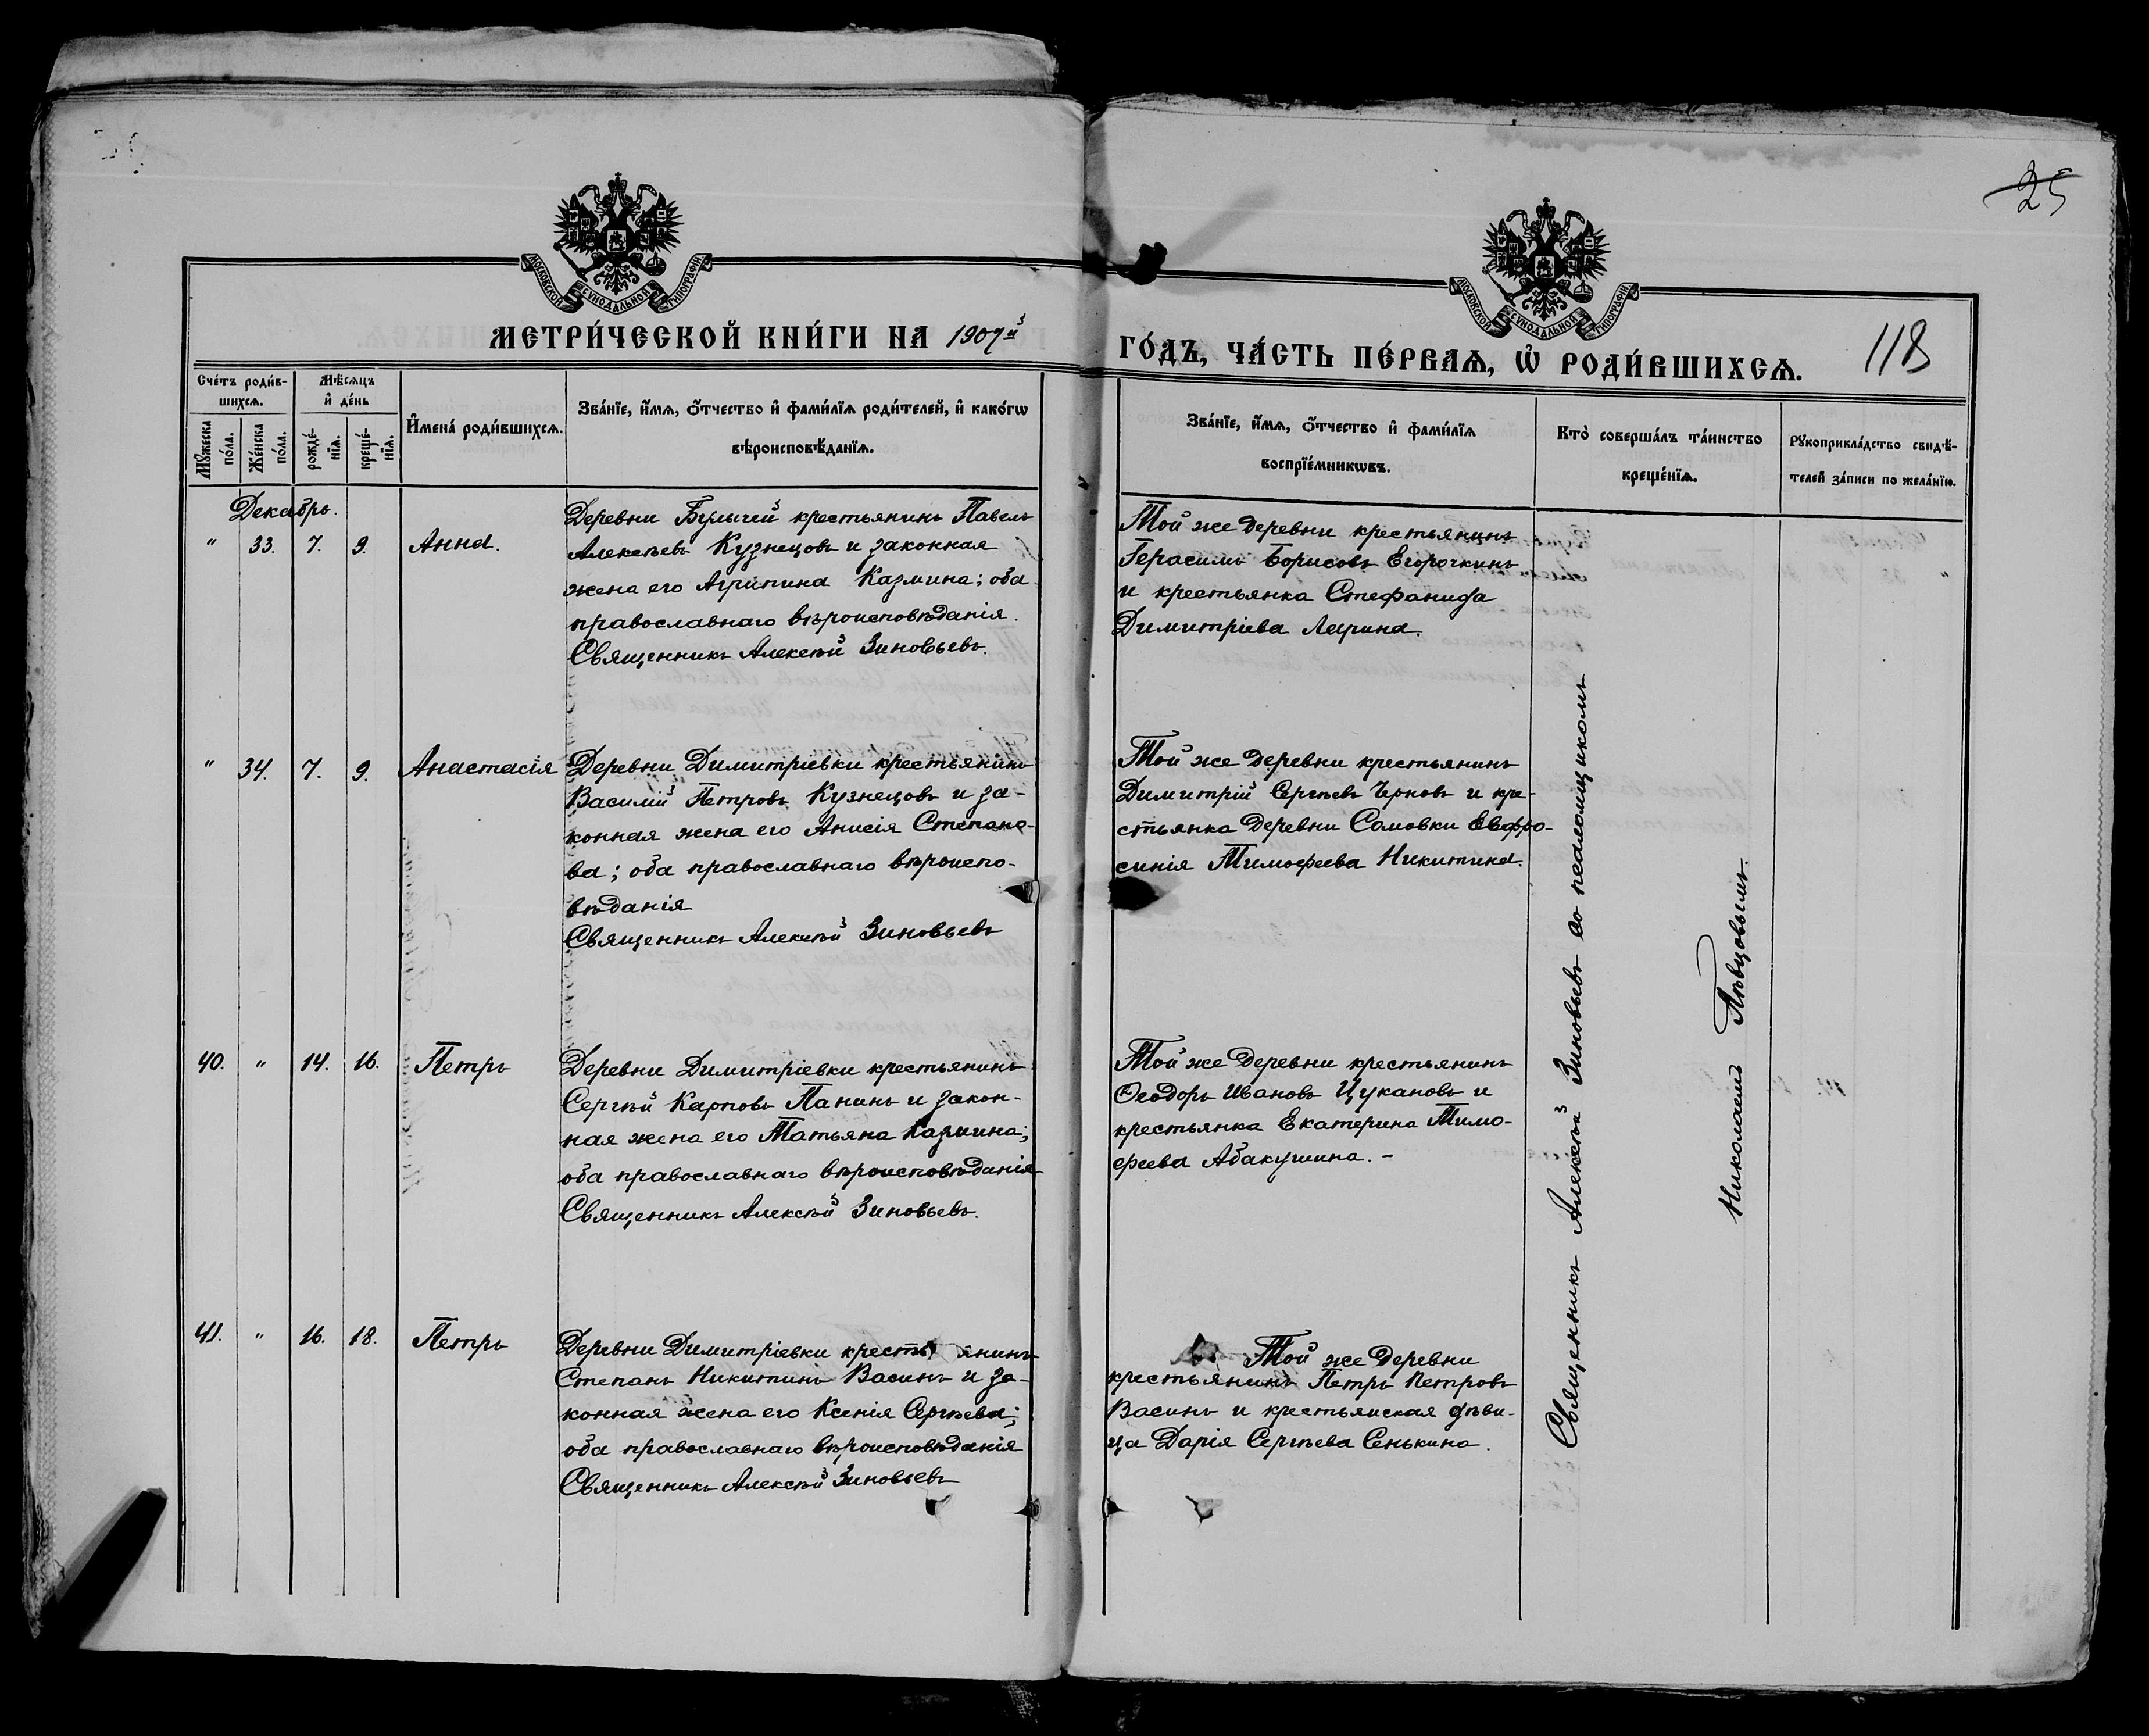 25
МОСКОВСКОЙ СѴНОДАЛЬНОЙ ТИПОГРАФІИ
МОСКОВСКОЙ СѴНОДАЛЬНОЙ ТИПОГРАФІИ
МЕТРИ́ЧЕСКОЙ КНИ́ГИ НА 1907й
ГО́ДЪ, ЧА́СТЬ ПЕ́РВАѦ, Ѡ҆ РОДИ́ВШИХСѦ.
118
Сче́тъ роди́в-
шихсѧ.
Мѣ́сѧцъ
и҆ де́нь
Мꙋ́жеска
по́ла.
Же́нска
по́ла.
рожде́-
нїѧ.
креще́-
нїѧ.
И҆мена́ роди́вшихсѧ.
Зва́нїе, и҆́мѧ, ѻ҆́тчество и҆ фами́лїѧ роди́телей, и҆ како́гѡ
вѣроисповѣ́данїѧ.
Зва́нїе, и҆́мѧ, ѻ҆́тчество и҆ фами́лїѧ
воспрїе́мникѡвъ.
Кто̀ соверша́лъ та́инство
креще́нїѧ.
Рꙋкоприкла́дство свидѣ́-
телей за́писи по жела́нїю.
Декабрь.
" 33. 7. 9. Анна.
Деревни Булычей крестьянинъ Павелъ
Алексѣевъ Кузнецовъ и законная
жена его Агрипина Казмина; оба
православнаго вѣроисповѣданія.
Священникъ Алексѣй Зиновьевъ.
Той же деревни крестьянинъ
Герасимъ Борисовъ Егорочкинъ
и крестьянка Стефанида
Димитріева Ларина.
" 34. 7. 9. Анастасія
Деревни Димитріевки крестьянинъ
Василій Петровъ Кузнецовъ и за-
конная жена его Анисія Степано-
ва; оба православнаго вѣроиспо-
вѣданія
Священникъ Алексѣй Зиновьевъ
Той же деревни крестьянинъ
Димитрій Сергѣевъ Черновъ и кре-
стьянка деревни Самовки Евфро-
синія Тимоѳеева Никитина.
40. " 14. 16. Петръ
Деревни Димитріевки крестьянинъ
Сергѣй Карповъ Панинъ и закон-
ная жена его Татьяна Казмина;
оба православнаго вѣроисповѣданія
Священникъ Алексѣй Зиновьевъ.
Той же деревни крестьянинъ
Ѳеодоръ Ивановъ Цукановъ и
крестьянка Екатерина Тимо-
ѳеева Абакушина. -
41. " 16. 18. Петръ
Деревни Димитріевки крестьянинъ
Степанъ Никитинъ Васинъ и за-
конная жена его Ксенія Сергѣева;
оба православнаго вѣроисповѣданія
Священникъ Алексѣй Зиновьевъ
Той же деревни
крестьянинъ Петръ Петровъ
Васинъ и крестьянская дѣви-
ца Дарія Сергѣева Сенькина.
Священникъ Алексѣй Зиновьевъ со псаломщикомъ
Николаемъ Пѣвцовымъ.